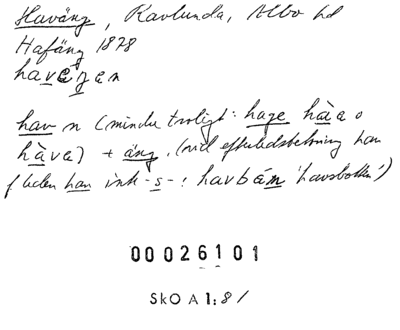 Haväng, Ravlunda, Albo hd
Hafäng 1878
havæŋen
hav n (mindre troligt: hage hàa o
hàva) + äng. (vid efterledsbetoning kan
f leden han inte -s-: havbám 'havsbotten')
00026101
SkO A 1:8/